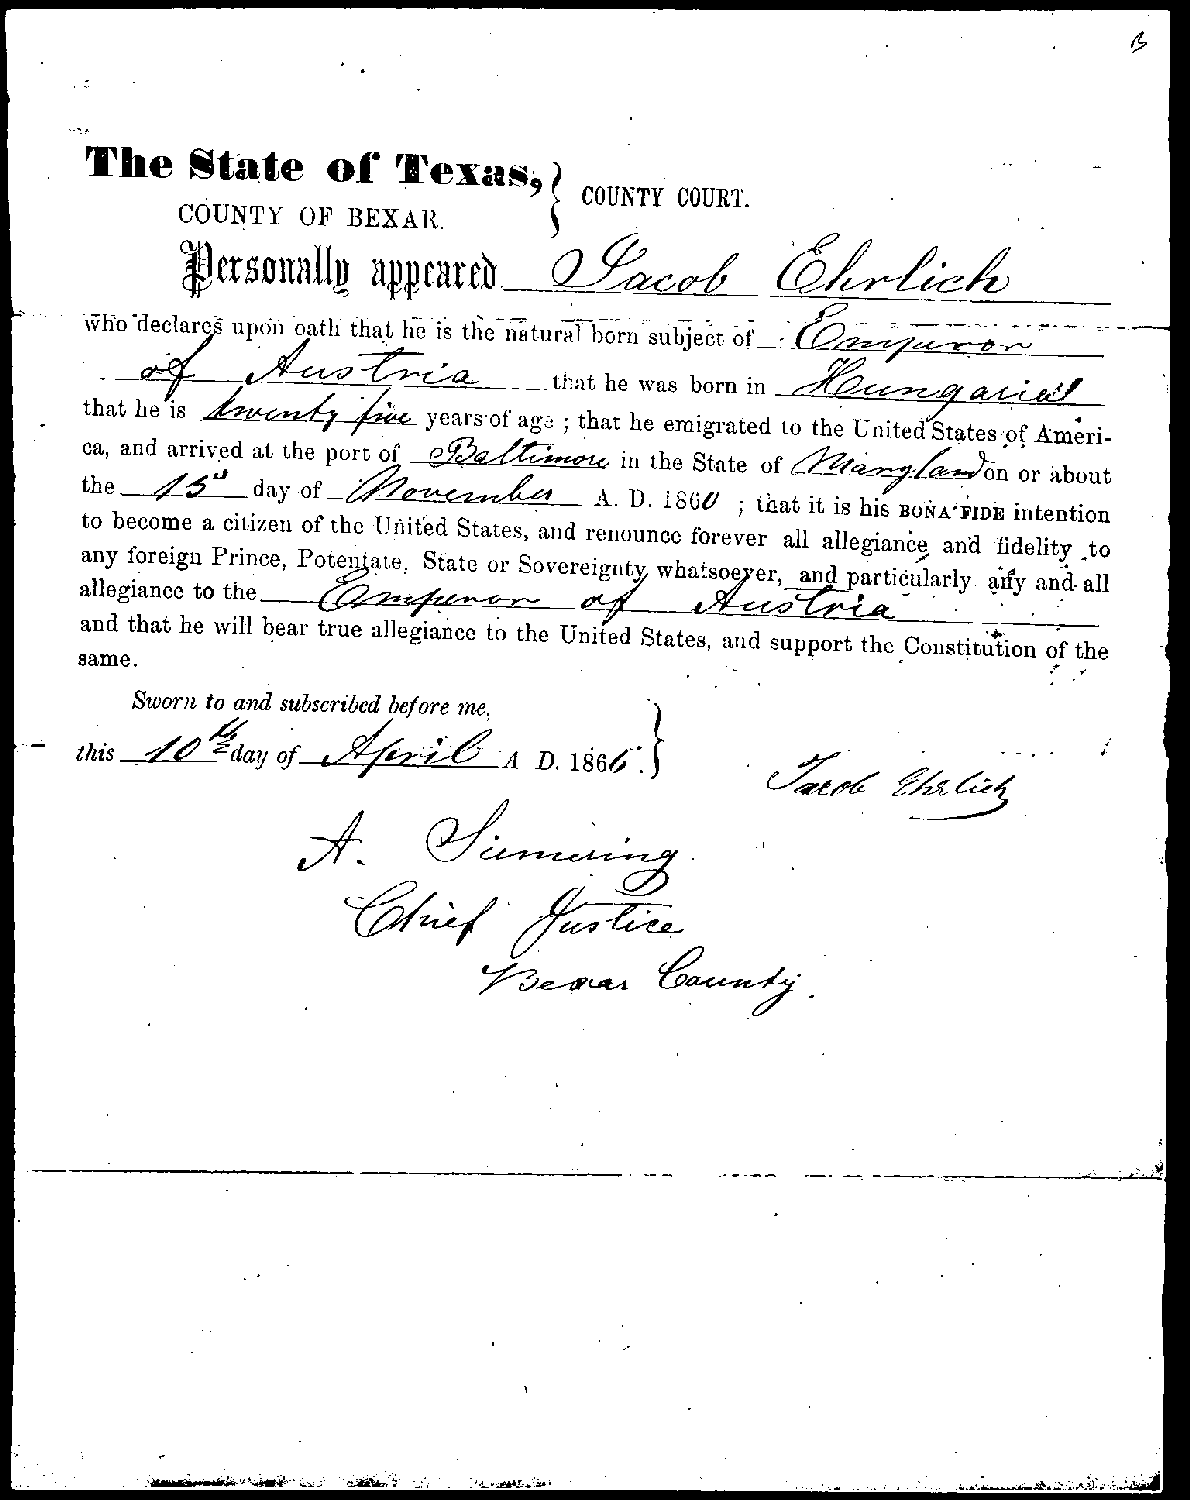 B
The State of Texas, } COUNTY COURT.
COUNTY OF BEXAR.
Personally appeared Jacob Ehrlich
who declares upon oath that he is the natural born subject of Emperor
of Austria that he was born in Hungaria
that he is twenty five years of age ; that he emigrated to the United States of Ameri-
ca, and arrived at the port of Baltimore in the State of Maryland on or about
the 15 day of November A. D. 1860 ; that it is his BONA FIDE intention
to become a citizen of the United States, and renounce forever all allegiance and fidelity to
any foreign Prince, Potentate, State or Sovereignty whatsoever, and particularly any and all
allegiance to the Emperor of Austria
and that he will bear true allegiance to the United States, and support the Constitution of the
same.
Sworn to and subscribed before me,
this 10th day of April A D. 1866. }
Jacob Ehrlich
A. Siemering
Chief Justice
Bexar County.